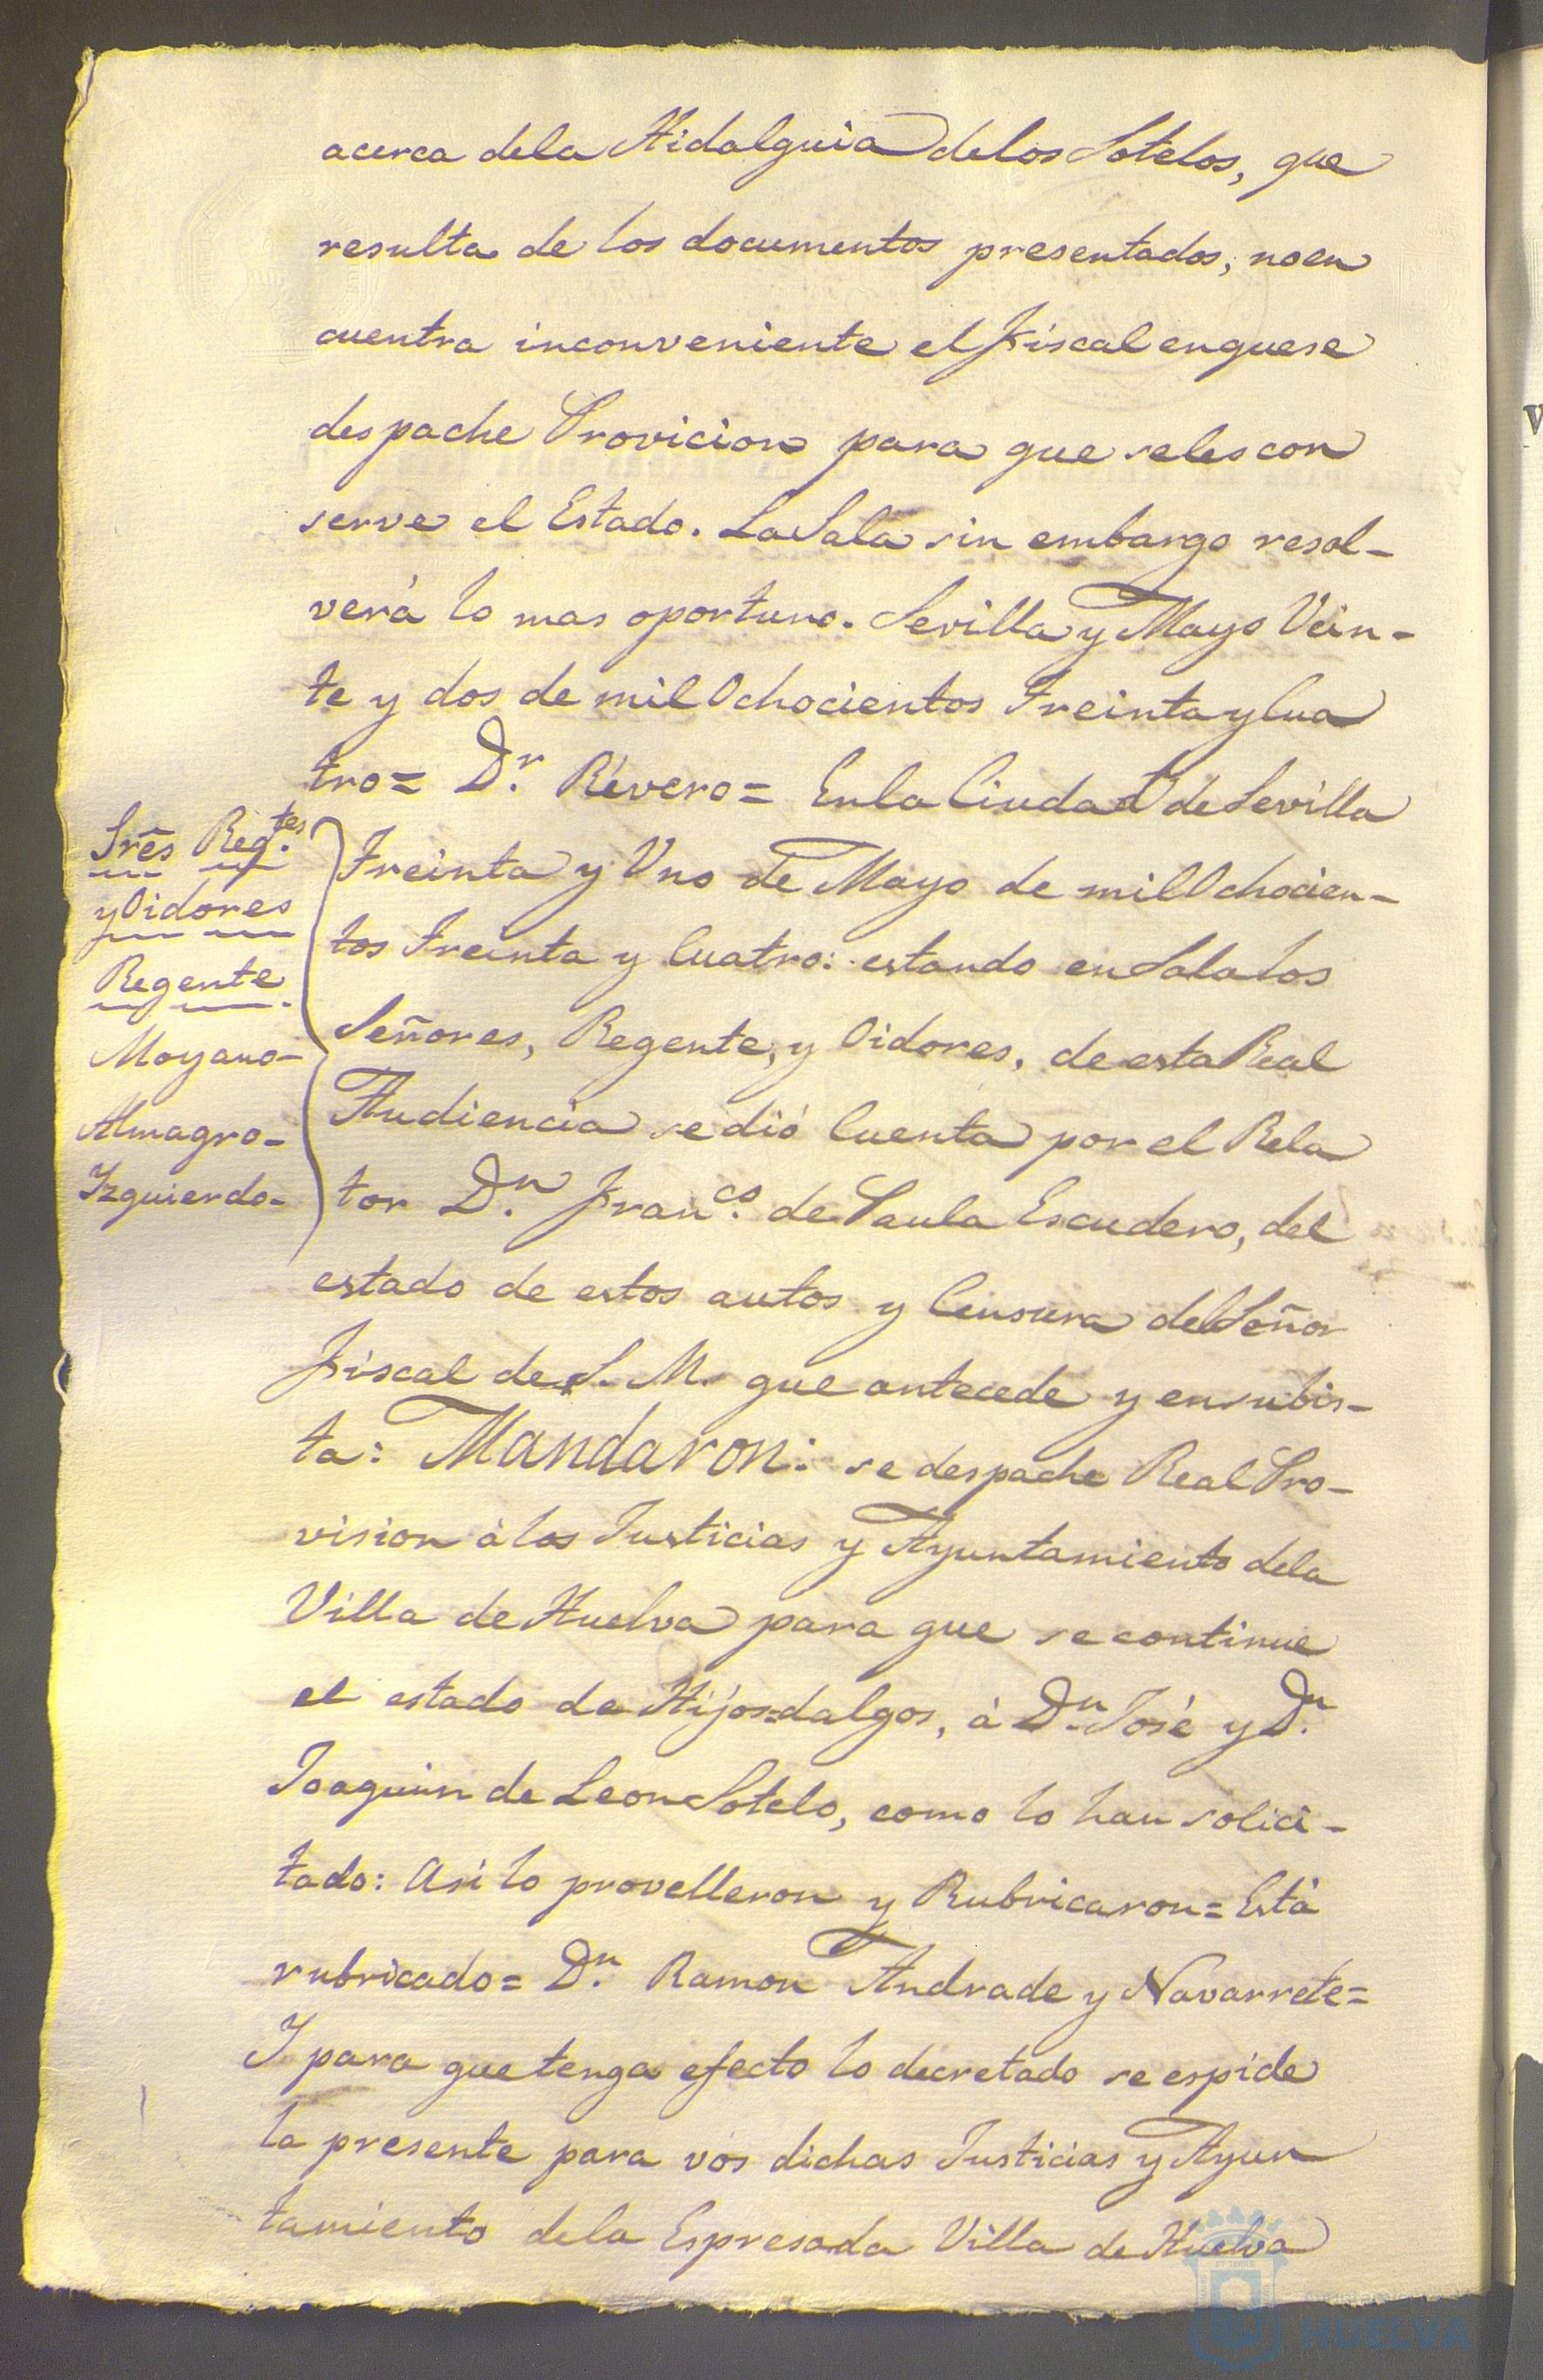 acerca dela Hidalguia delos Sotelos, que
resulta de los documentos presentados, noen
cuentra inconveniente el Fiscal enquese
despache Provicion para que seles con
serve el Estado. La Sala sin embargo resol-
verá lo mas oportuno. Sevilla y Mayo Vein-
te y dos de mil Ochocientos Treinta y Cua
tro= Dr. Rivero= Enla Ciudad de Sevilla
Treinta y Uno de Mayo de mil Ochocien-
tos treinta y Cuatro: estando en Sala los
Señores, Regente, y Oidores, de esta Real
Audiencia se dió Cuenta por el Rela
tor Dn. Franco. de Paula Escudero, del
estado de estos autos y Censura del Señor
Fiscal de S. M. que antecede y ensubis-
ta: Mandaron: se despache Real Pro-
vision á los Justicias y Ayuntamiento dela
Villa de Huelva para que se continue
el estado de Hijos=dalgos, á Dn. José y Dn.
Joaquin de Leon Sotelo, como lo han solici-
tado: Asi lo provelleron y Rubricaron= Está
rubricado= Dn. Ramon Andrade y Navarrete=
Y para que tenga efecto lo decretado se espide
la presente para vos dichas Justicias y Ayun
tamiento dela Espresada Villa de Huelva
Sres Regtes.
y Oidores
Regente.
Moyano-
Almagro-
Izquierdo-
HUELVA